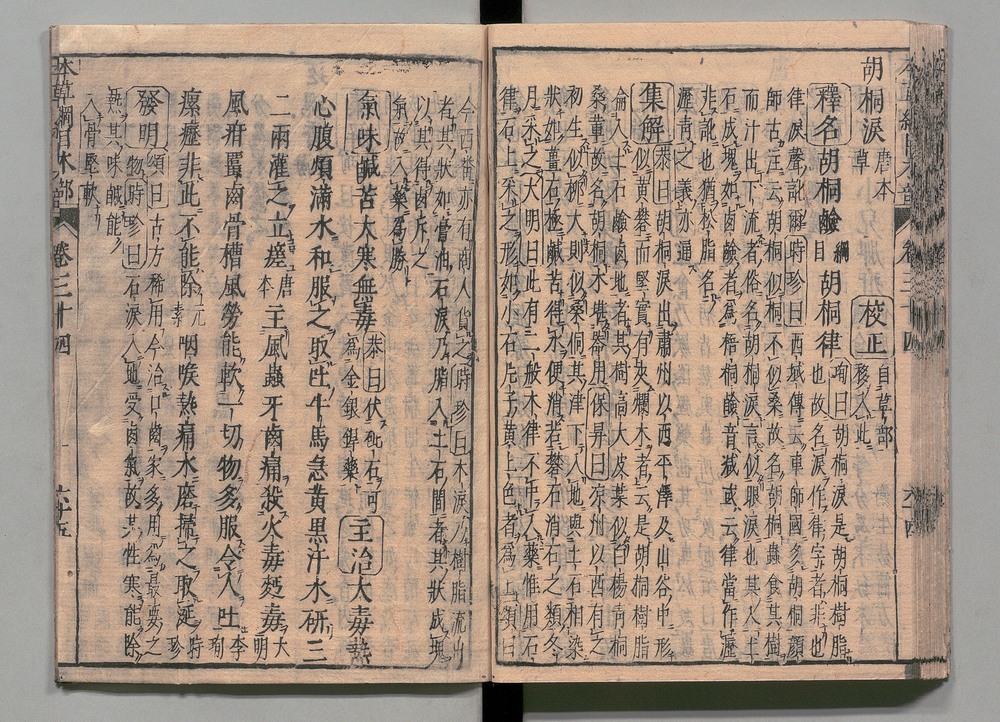 胡桐淚唐本草 校正 自草部
移入此
釋名胡桐鹼綱目胡桐律 珣曰胡桐淚是胡桐樹脂
也故名淚作律字者非也
律淚聲訛爾時珍曰西域傳云車師國多胡桐顏
師古註云胡桐似桐不似桑故名胡桐蟲食其樹
而汁出下流者俗名胡桐淚言似眼淚也其入土
石成塊如鹵鹼者爲梧桐鹼音減或云律當作瀝
非訛也猶松脂名
瀝青之義亦通
集解 恭曰胡桐淚出肅州以西平澤及山谷中形
似黃礬而堅實有夾爛木者云是胡桐樹脂
淪入土石鹼鹵地者其樹高大皮葉似白楊青桐
桑輩故名胡桐木堪器用保昇曰凉州以西有之
初生似柳大則似桑桐其津下入地與土石相染
狀如薑石極鹹苦得水便消若礬石消石之類冬
月采之大明曰此有二般木律不中入藥惟用石
律石上采之形如小石片子黃土色者爲上頌曰
今西番亦有商人貨之時珍曰木淚乃樹脂流出
者其狀如膏油石淚乃脂入土石間者其狀成塊
以其得鹵斥之
氣故入藥爲勝
氣味鹹苦大寒無毒 恭曰伏砒石可
爲金銀銲藥 主治大毒熱
心腹煩滿水和服之取吐牛馬急黃黑汗水研三
二兩灌之立瘥唐本主風蟲牙齒痛殺火毒麪毒大明
風疳䘌齒骨槽風勞能軟一切物多服令人吐李珣
瘰癧非此不能除元素咽喉熱痛水磨掃之取涎時珍
發明 頌曰古方稀用今治口齒家多用爲最要之
物時珍曰石淚入地受鹵氣故其性寒能除
熱其味鹹能
入骨堅軟
本草綱目木部 卷三十四 六十五